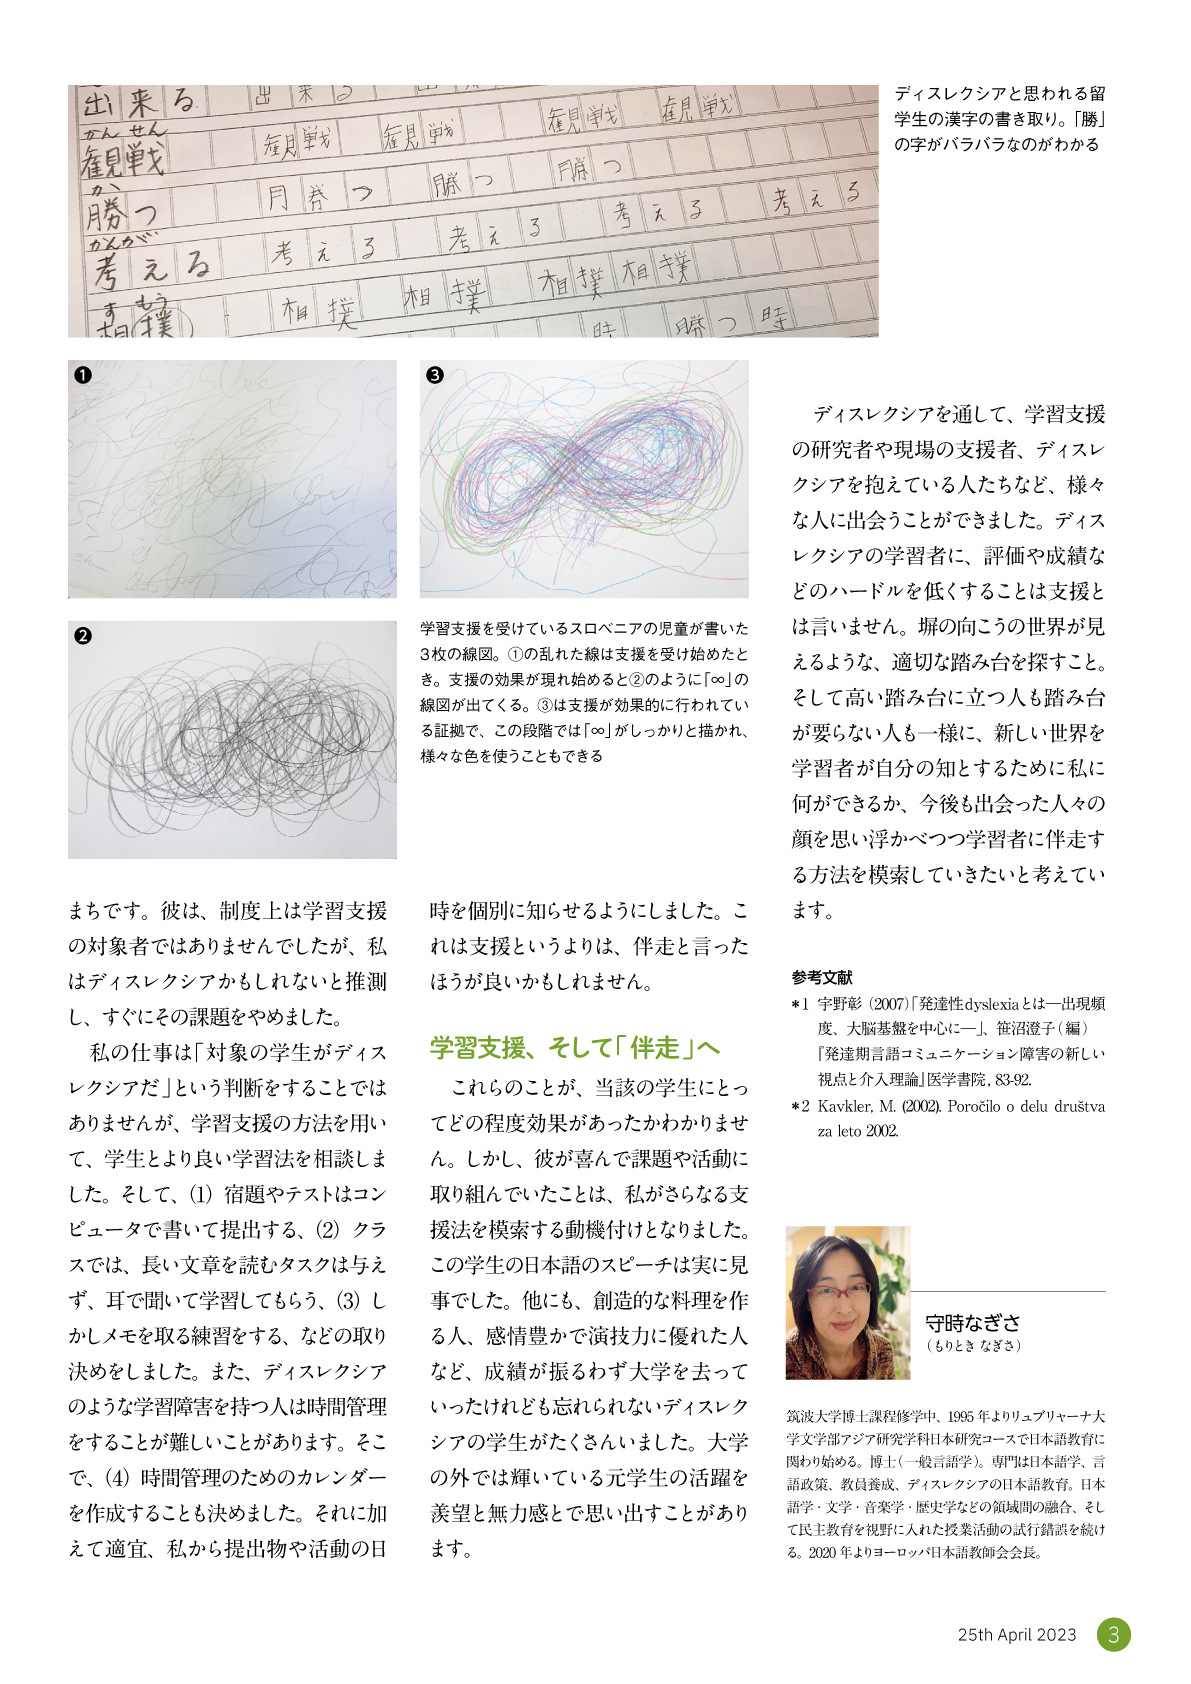 出来る 出来る
かんせん
観戦 観戦 観戦 観戦 観戦
か
勝つ 月券つ 勝つ 勝つ
かんが
考える 考える 考える 考える 考える
すもう
相撲 相撲 相撲 相撲 相撲
時 勝つ 時
ディスレクシアと思われる留
学生の漢字の書き取り。「勝」
の字がバラバラなのがわかる
❶
❸
❷
学習支援を受けているスロベニアの児童が書いた
3枚の線図。①の乱れた線は支援を受け始めたと
き。支援の効果が現れ始めると②のように「∞」の
線図が出てくる。③は支援が効果的に行われてい
る証拠で、この段階では「∞」がしっかりと描かれ、
様々な色を使うこともできる
まちです。彼は、制度上は学習支援
の対象者ではありませんでしたが、私
はディスレクシアかもしれないと推測
し、すぐにその課題をやめました。
私の仕事は「対象の学生がディス
レクシアだ」という判断をすることでは
ありませんが、学習支援の方法を用い
て、学生とより良い学習法を相談しま
した。そして、(1) 宿題やテストはコン
ピュータで書いて提出する、(2) クラ
スでは、長い文章を読むタスクは与え
ず、耳で聞いて学習してもらう、(3) し
かしメモを取る練習をする、などの取り
決めをしました。また、ディスレクシア
のような学習障害を持つ人は時間管理
をすることが難しいことがあります。そこ
で、(4) 時間管理のためのカレンダー
を作成することも決めました。それに加
えて適宜、私から提出物や活動の日
時を個別に知らせるようにしました。こ
れは支援というよりは、伴走と言った
ほうが良いかもしれません。
学習支援、そして「伴走」へ
これらのことが、当該の学生にとっ
てどの程度効果があったかわかりませ
ん。しかし、彼が喜んで課題や活動に
取り組んでいたことは、私がさらなる支
援法を模索する動機付けとなりました。
この学生の日本語のスピーチは実に見
事でした。他にも、創造的な料理を作
る人、感情豊かで演技力に優れた人
など、成績が振るわず大学を去って
いったけれども忘れられないディスレク
シアの学生がたくさんいました。大学
の外では輝いている元学生の活躍を
羨望と無力感とで思い出すことがあり
ます。
ディスレクシアを通して、学習支援
の研究者や現場の支援者、ディスレ
クシアを抱えている人たちなど、様々
な人に出会うことができました。ディス
レクシアの学習者に、評価や成績な
どのハードルを低くすることは支援と
は言いません。塀の向こうの世界が見
えるような、適切な踏み台を探すこと。
そして高い踏み台に立つ人も踏み台
が要らない人も一様に、新しい世界を
学習者が自分の知とするために私に
何ができるか、今後も出会った人々の
顔を思い浮かべつつ学習者に伴走す
る方法を模索していきたいと考えてい
ます。
参考文献
*1 宇野彰 (2007)「発達性dyslexiaとは―出現頻
度、大脳基盤を中心に―」、笹沼澄子(編)
『発達期言語コミュニケーション障害の新しい
視点と介入理論』医学書院, 83-92.
*2 Kavkler, M. (2002). Poročilo o delu društva
za leto 2002.
守時なぎさ
(もりとき なぎさ)
筑波大学博士課程修学中、1995年よりリュブリャーナ大
学文学部アジア研究学科日本研究コースで日本語教育に
関わり始める。博士(一般言語学)。専門は日本語学、言
語政策、教員養成、ディスレクシアの日本語教育。日本
語学・文学・音楽学・歴史学などの領域間の融合、そし
て民主教育を視野に入れた授業活動の試行錯誤を続け
る。2020年よりヨーロッパ日本語教師会会長。
25th April 2023 3